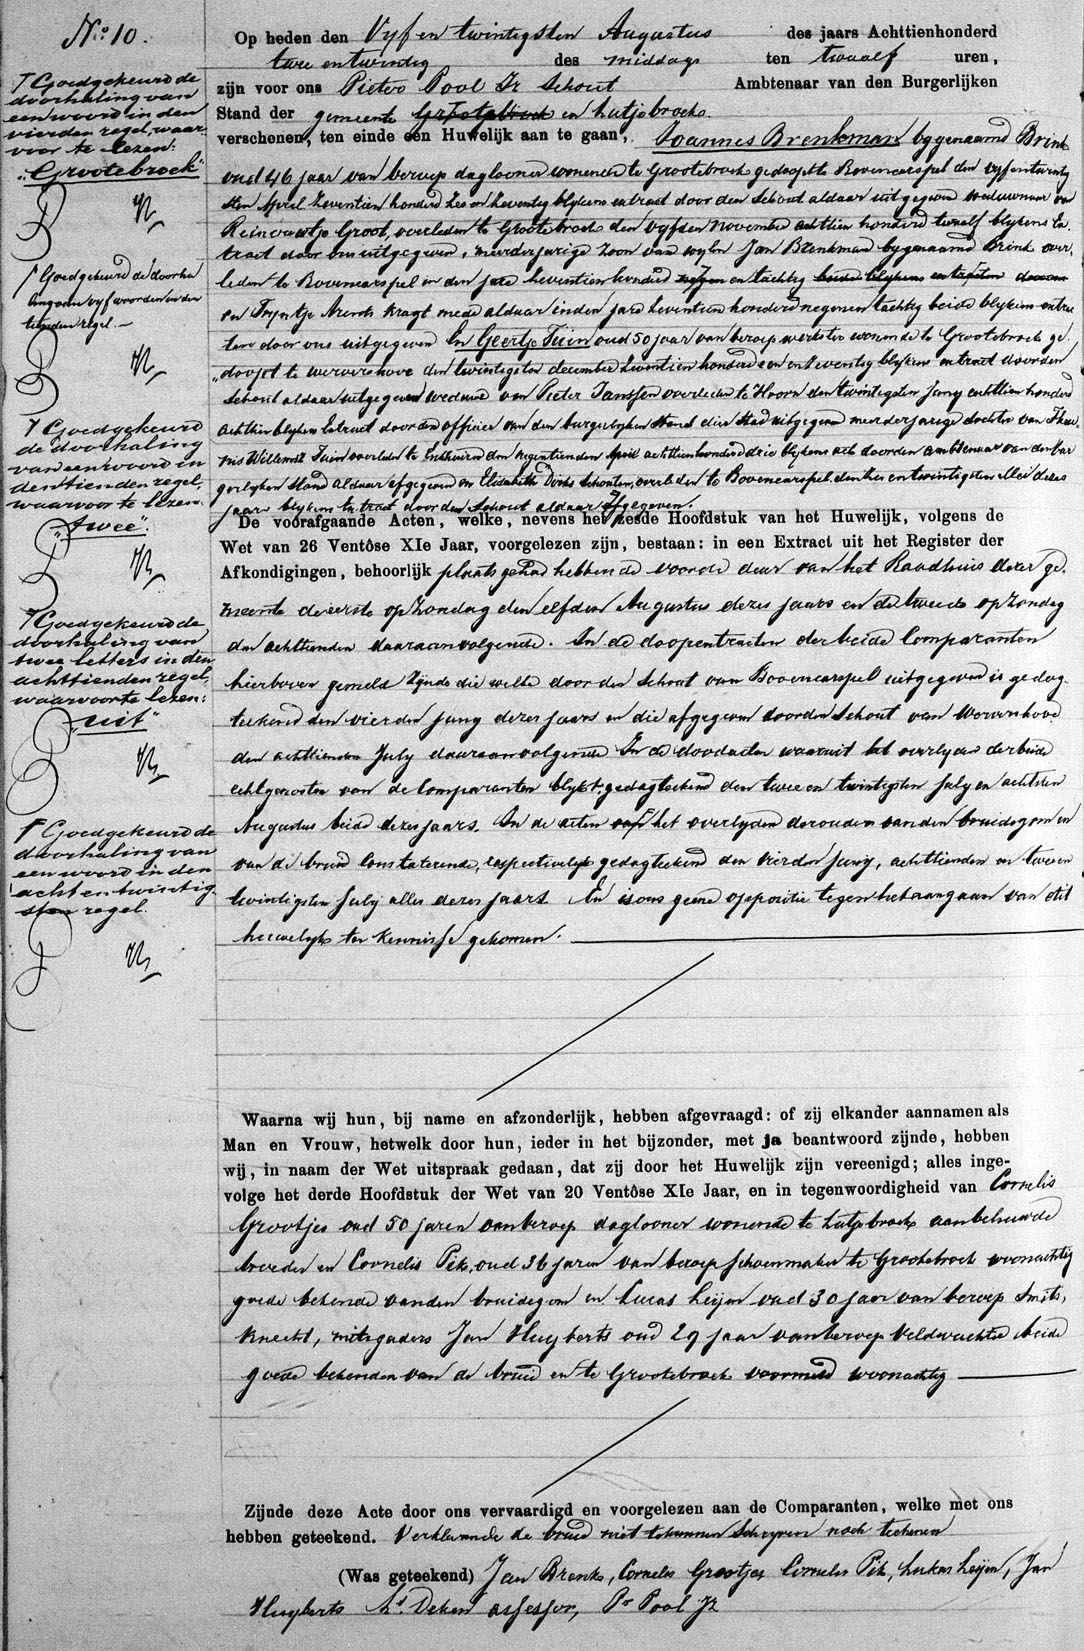 No. 10.
† Goedgekeurd de
doorhaling van
een woord in den
vierden regel, waar-
voor te lezen:
„Grootebroek"
† Goedgekeurd de doorha
lingen van vyf woorden in den
tienden regel.—
† Goedgekeurd
de doorhaling
van een woord in
den tienden regel,
waarvoor te lezen
„twee".
† Goedgekeurd de
doorhaling van
twee letters in den
achttienden regel,
waarvoor te lezen:
„uit"
† Goedgekeurd de
doorhaling van
een woord in den
acht en twintig-
sten regel.
Op heden den Vyf en twintigsten Augustus des jaars Achttienhonderd
twee en twintig des middags ten twaalf uren,
zijn voor ons Pieter Pool Jr Schout Ambtenaar van den Burgerlijken
Stand der gemeente Grootebroek en Lutjebroek
verschenen, ten einde een Huwelijk aan te gaan, Joannes Brenkman bygenaamd Brink
oud 46 jaar van beroep daglooner wonende te Grootebroek gedoopt te Bovencarspel den vyfentwintig
sten April zeventien honderd zes en zeventig blykens extract door den Schout aldaar uitgegeven weduwnaar van
Reinoutje Groot, overleden te Grootebroek den vyfden November achttien honderd twaalf blykens Ex
tract door ons uitgegeven, meerderjarige zoon van wylen Jan Brenkman bygenaamd Brink over
leden te Bovencarspel in den jare zeventien honderd negen en tachtig beide blykens extracten door ons
en Tryntje Arends Kragt mede aldaar in den jare zeventien honderd negen en tachtig beide blykens extrac
ten door ons uitgegeven En Geertje Tuin oud 50 jaar van beroep werkster wonende te Grootebroek ge
doopt te Wervershove den twintigsten december zeventien honderd een en zeventig blykens extract door den
Schout aldaar uitgegeven weduwe van Pieter Janssen overleden te Hoorn den twintigsten Juny achttien honderd
achttien blykens Extract door den officier van den burgerlyken Stand dier Stad uitgegeven meerderjarige dochter van
Willemsz Tuin overleden te Enkhuizen den negentienden April achttienhonderd drie blykens acte door den ambtenaar van den bur
gerlyken Stand aldaar afgegeven en Elisabeth Dirks Schouten, overleden te Bovencarspel den zes en twintigsten Mei dezes
jaars blykens Extract door den Schout aldaar afgegeven.
De voorafgaande Acten, welke, nevens het zesde Hoofdstuk van het Huwelijk, volgens de
Wet van 26 Ventôse XIe Jaar, voorgelezen zijn, bestaan: in een Extract uit het Register der
Afkondigingen, behoorlijk plaats gehad hebbende voor de deur van het Raadhuis dezer ge-
meente de eerste op Zondag den elfden Augustus dezes jaars en de tweede op Zondag
den achttienden daaraanvolgende. In de doopextracten der beide Comparanten
hierboven gemeld zijnde die welke door den Schout van Bovencarspel uitgegeven is gedag-
teekend den vierden Juny dezer jaars en die afgegeven door den Schout van Wervershove
den achttienden July daaraanvolgende In de doodacten waaruit het overlyden der beide
echtgenooten van de Comparanten blykt, gedagteekend den twee en twintigsten July en achtsten
Augustus beide dezes jaars. In de acten van het overlyden der ouders van den bruidegom en
van de bruid Constateerende, respectivelyk gedagteekend den vierden Juny, achttienden en twee en
twintigsten July alles dezes jaars. En is ons geene oppositie tegen het aangaan van dit
huwelyk ter kennisse gekomen.
Waarna wij hun, bij name en afzonderlijk, hebben afgevraagd: of zij elkander aannamen als
Man en Vrouw, hetwelk door hun, ieder in het bijzonder, met ja beantwoord zijnde, hebben
wij, in naam der Wet uitspraak gedaan, dat zij door het Huwelijk zijn vereenigd; alles inge-
volge het derde Hoofdstuk der Wet van 20 Ventôse XIe Jaar, en in tegenwoordigheid van Cornelis
Grootjes oud 50 jaren van beroep daglooner wonende te Lutjebroek aanbehuwde
broeder en Cornelis Pik, oud 36 jaren van beroep schoenmaker te Grootebroek woonachtig
goede bekende van den bruidegom en Lucas Leijen oud 30 jaar van beroep Smits-
knecht, mitsgaders Jan Huyberts oud 29 jaar van beroep Veldwachter beide
goede bekenden van de bruid en te Grootebroek voormeld woonachtig
Zijnde deze Acte door ons vervaardigd en voorgelezen aan de Comparanten, welke met ons
hebben geteekend. Verklarende de bruid niet te kunnen Schryven noch teekenen
(Was geteekend) Jan Brenk, Cornelis Grootjes Cornelis Pik, Lukas Leijen, Jan
Huyberts Deken assessor, Pr Pool Jr